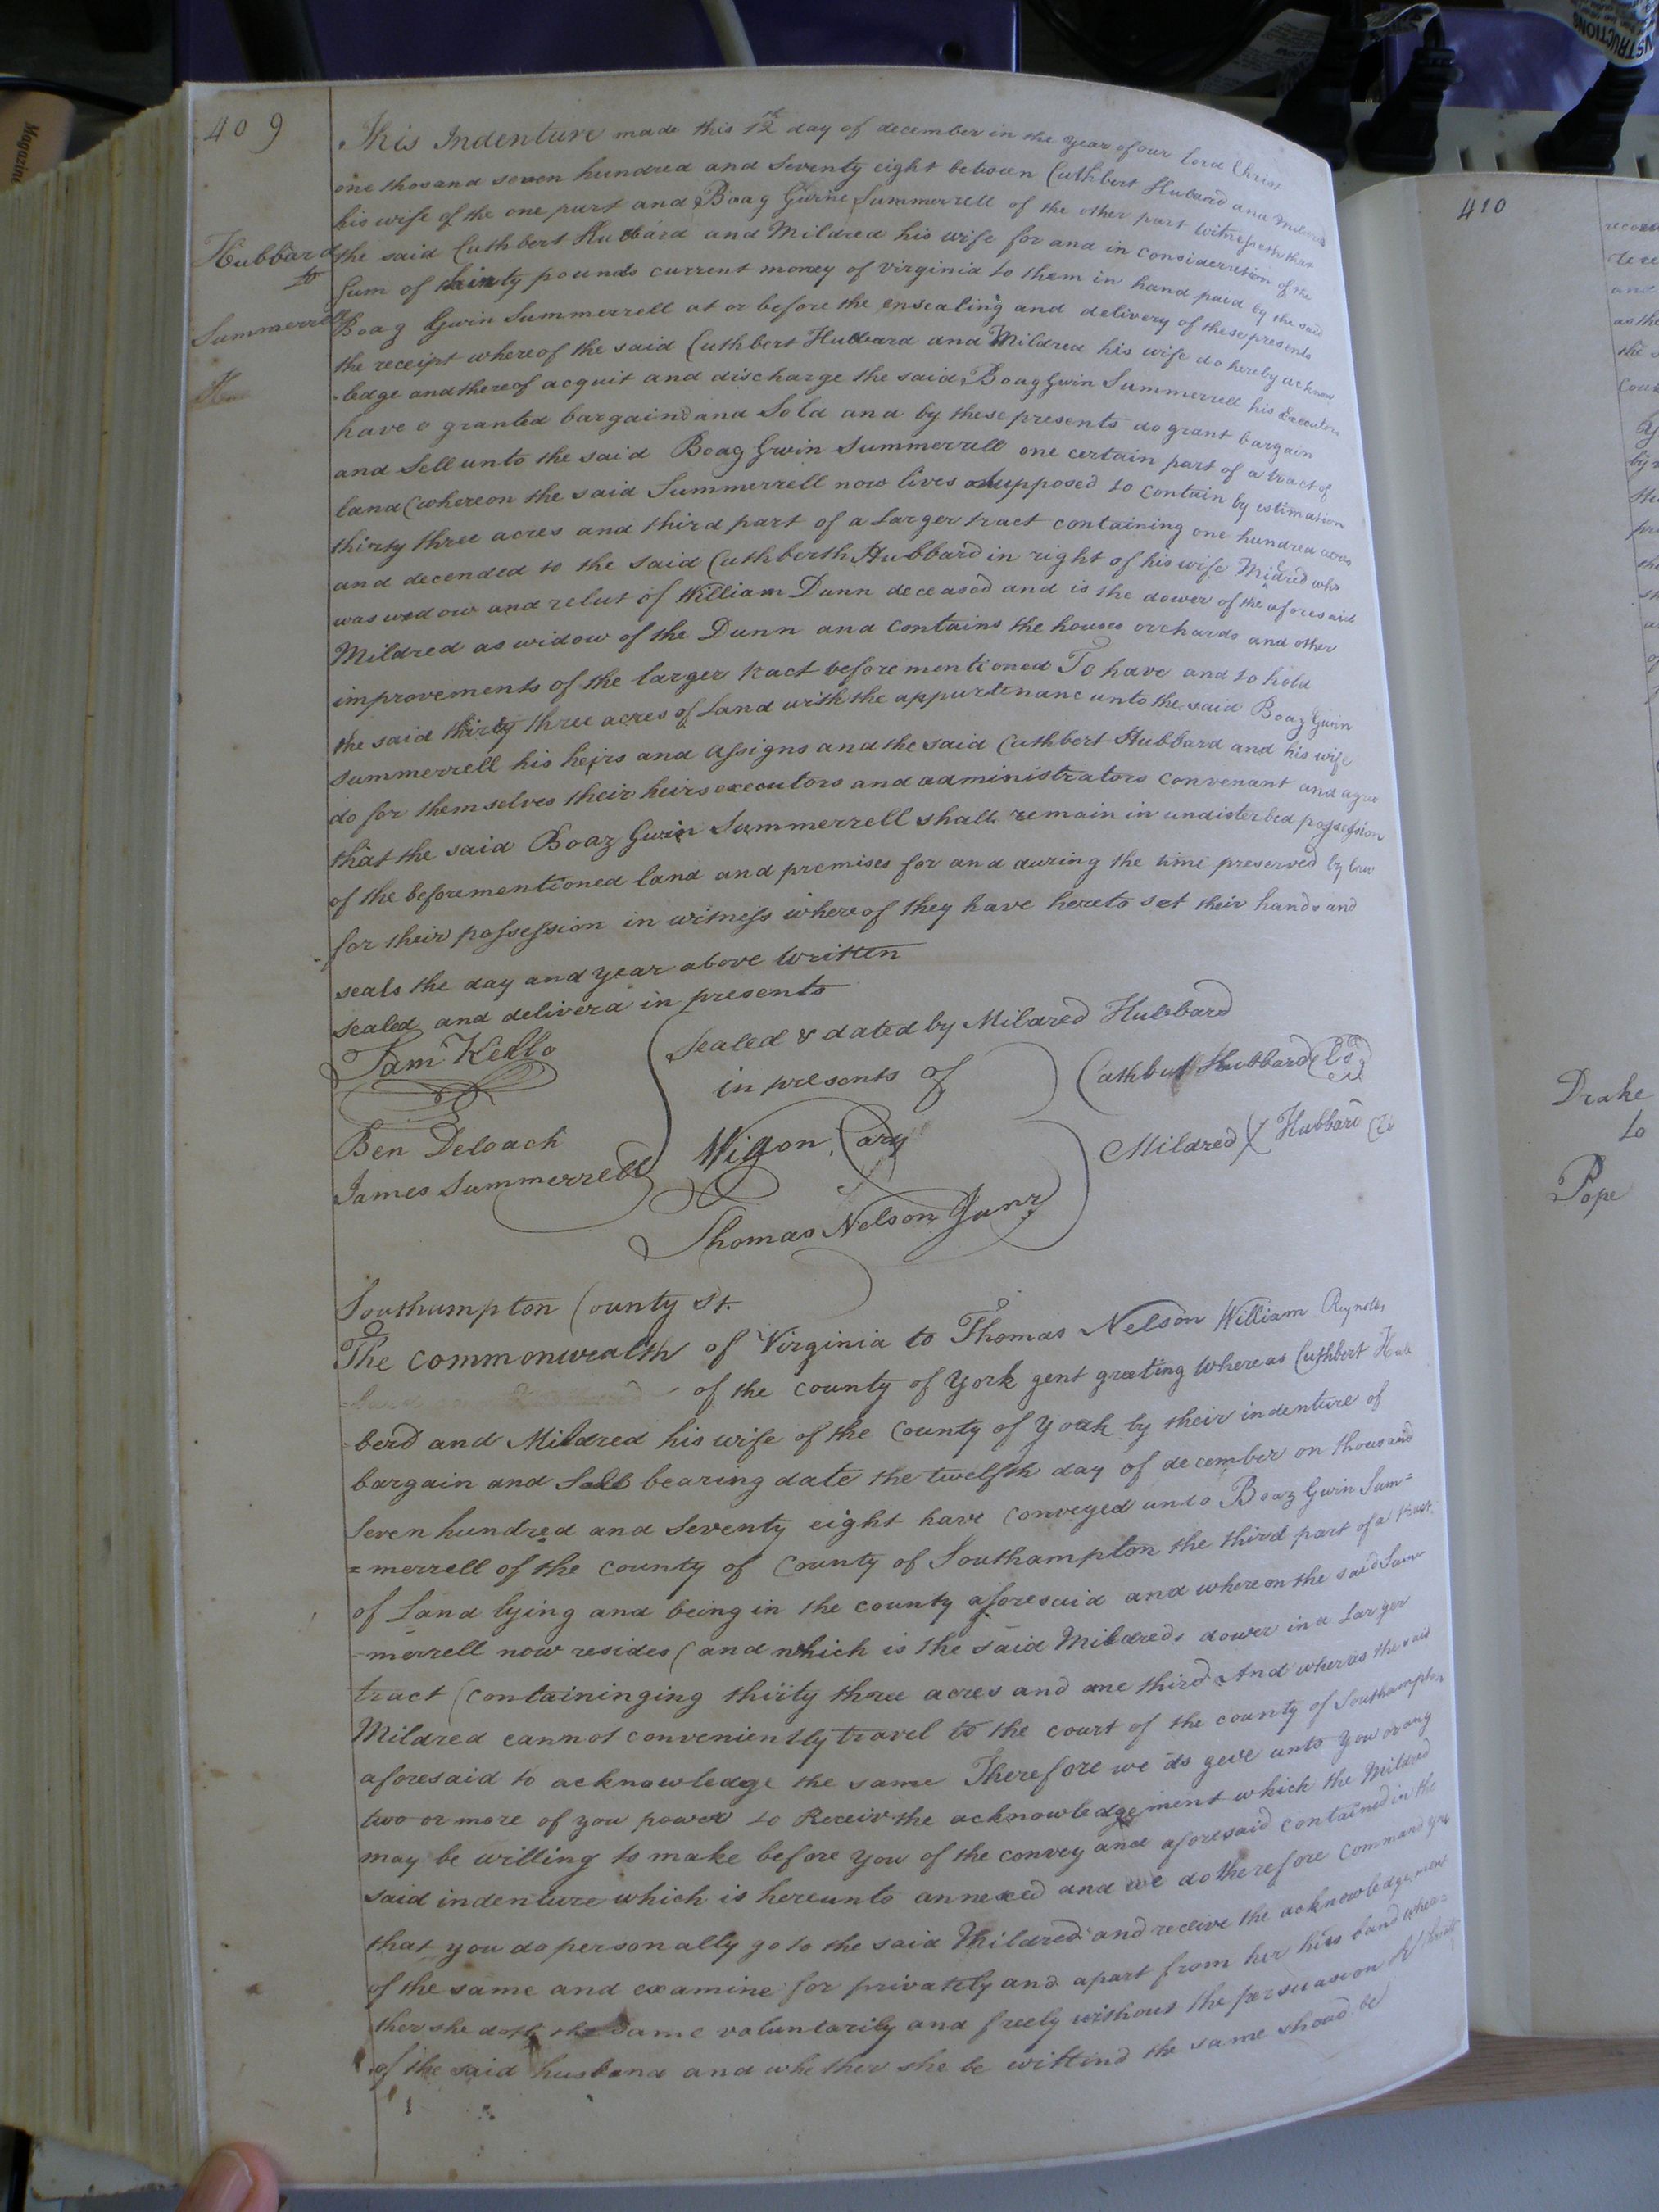 409
Hubbard
to
Summerrell
This Indenture made this 12th day of december in the year of our lord Christ
one thosand seven hundred and Seventy eight between Cuthbert Hubbard and Mildred
his wife of the one part and Boag Gwine Summerrell of the other part witnesseth that
the said Cuthbert Hubbard and Mildred his wife for and in consideration of the
Sum of thirty pounds current money of virginia to them in hand paid by the said
Boag Gwin Summerrell at or before the ensealing and delivery of these presents
the receipt whereof the said Cuthbert Hubbard and Mildred his wife do hereby acknow
-ledge and thereof acquit and discharge the said Boag Gwin Summerrell his Executors
have granted bargaind and Sold and by these presents do grant bargain
and Sell unto the said Boag Gwin Summerrell one certain part of a tract of
land (whereon the said Summerrell now lives supposed to contain by estimation
thirty three acres and third part of a Larger tract containing one hundred acres
and decended to the said Cuthberth Hubbard in right of his wife Mildred who
was wedow and relut of William Dunn deceased and is the dower of the aforesaid
Mildred as widow of the Dunn and contains the houses orchards and other
improvements of the larger tract before mentioned To have and to hold
the said thirty three acres of Land with the appurtenanc unto the said Boaz Gwin
summerrell his heirs and assigns and the said Cuthbert Hubbard and his wife
do for themselves their heirs executors and administrators convenant and agree
that the said Boaz Gwin Summerrell shall remain in undisterbed possession
of the beforementioned land and premises for and during the time preserved by law
for their possession in witness whereof they have hereto set their hands and
seals the day and year above written
sealed and deliverd in presents
Sam Kello
Ben Deloach
James Summerrell
Sealed & dated by Mildred Hubbard
in presents of
Wilson Cary
Thomas Nelson Junr
Cuthbut Hubbard (Ls)
Mildred X Hubbard (Ls
Southampton County St.
The commonwealth of Virginia to Thomas Nelson William Reynolds
of the county of York gent greeting whereas Cuthbert Hub
berd and Mildred his wife of the County of York by their indenture of
bargain and Sale bearing date the twelfth day of december on thousand
Seven hundred and Seventy eight have conveyed unto Boaz Gwin Sum=
=merrell of the county of county of Southampton the third part of a tract
of Land lying and being in the county aforesaid and whereon the said Sum
-merrell now resides (and which is the said Mildreds dower in a Larger
tract (containinging thirty three acres and one third And wheras the said
Mildred cannot conveniently travel to the court of the county of Southampton
aforesaid to acknowledge the same Therefore we do geve unto you or any
two or more of you power to Receiv the acknowledgement which the Mildred
may be willing to make before you of the conveyance aforesaid contained in the
said indenture which is hereunto annexed and we do therefore command you
that you do personally go to the said Mildred and recieve the acknowledgement
of the same and examine for privately and apart from her husband whe=
ther she doth the same voluntarily and freely without the persuasion
of the said husband and whether she be willind the same shoud be
410
Drake
to
Pope